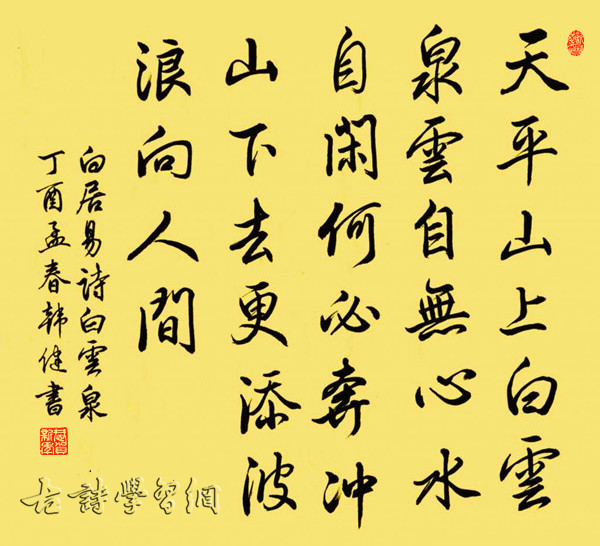 天平山上白雲
泉雲自無心水
自閑何必奔沖
山下去更添波
浪向人間
白居易詩白雲泉
丁酉孟春韩健書
古詩學習網